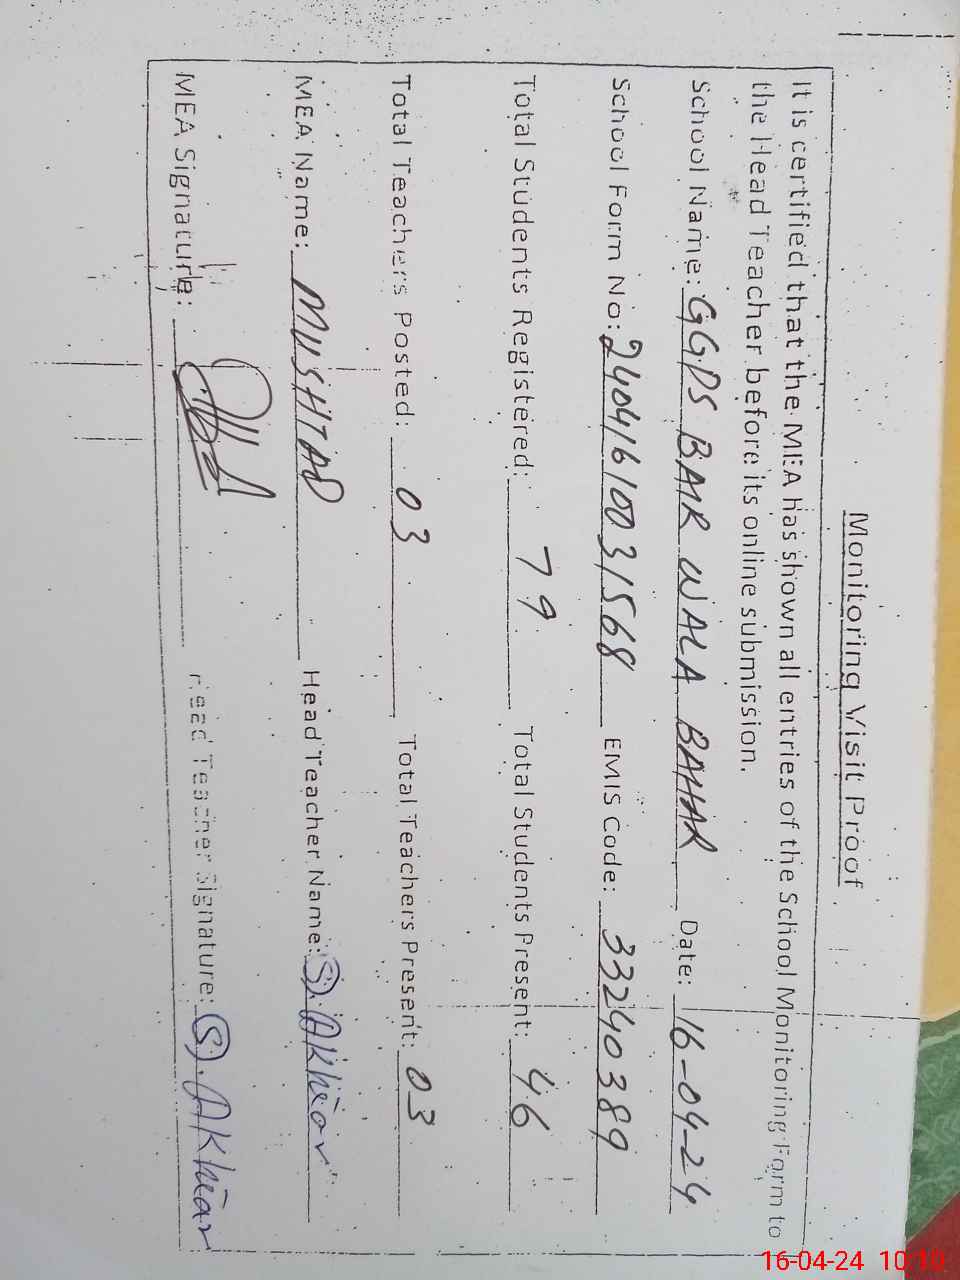 Monitoring Visit Proof
It is certified that the MEA has shown all entries of the School Monitoring Form to
the Head Teacher before its online submission.
School Name: GGPS BAIR WALA BAHAR Date: 16-04-24
School Form No: 24041610031568 EMIS Code: 33240389
Total Students Registered: 79 Total Students Present: 46
Total Teachers Posted: 03 Total Teachers Present: 03
MEA Name: MUSHTAQ Head Teacher Name: (S). AKhtar
MEA Signature: Head Teacher Signature: (S). AKhtar
16-04-24 10:10